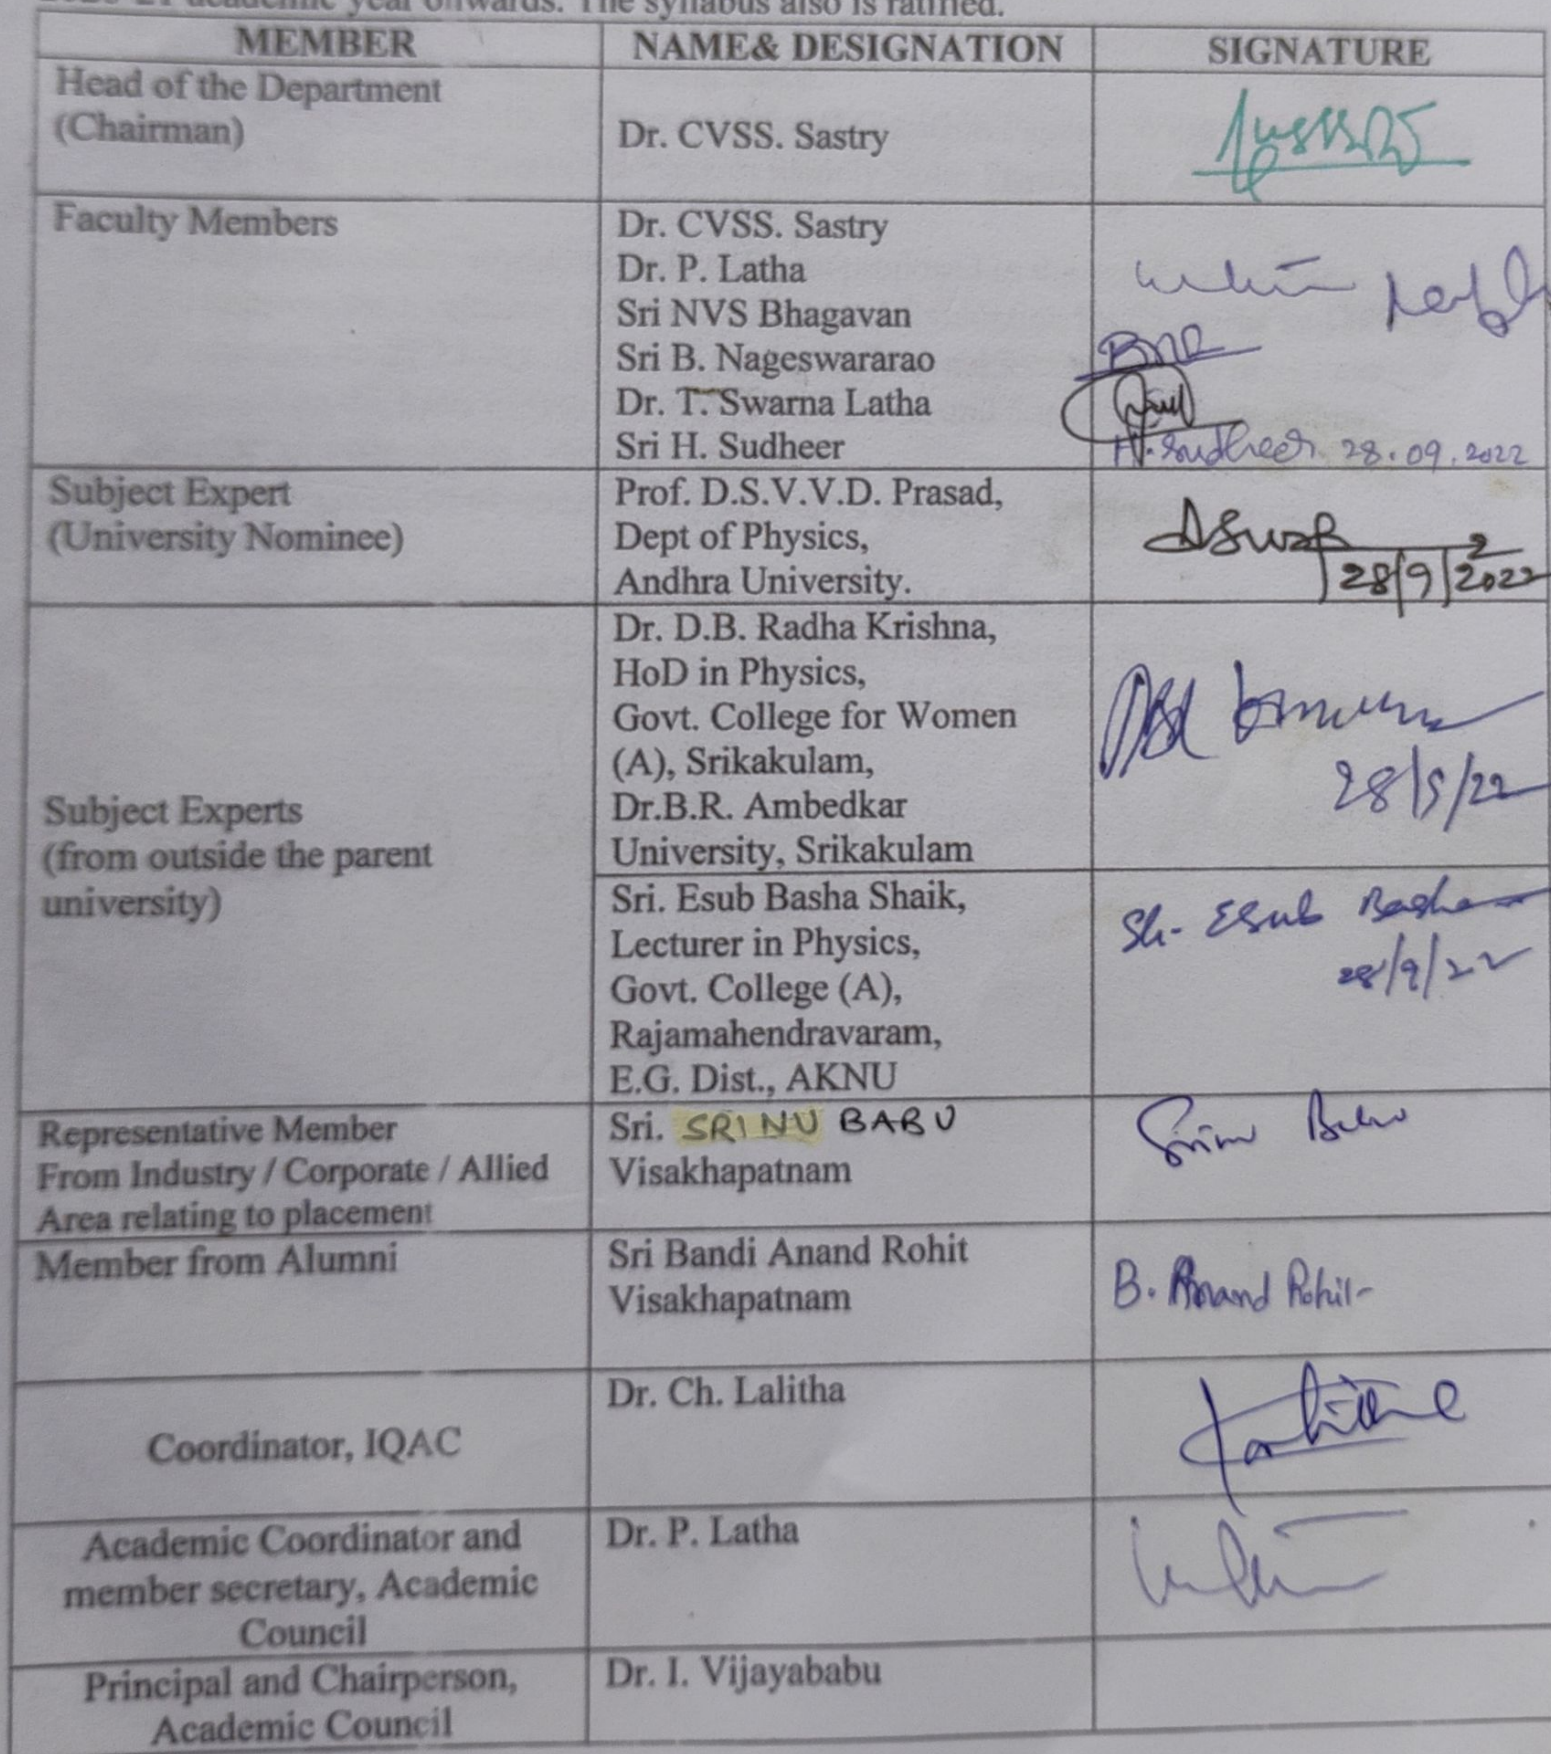 academic year onwards. The syllabus also is ratified.
MEMBER NAME& DESIGNATION SIGNATURE
Head of the Department
(Chairman)
Dr. CVSS. Sastry
Faculty Members
Dr. CVSS. Sastry
Dr. P. Latha
Sri NVS Bhagavan
Sri B. Nageswararao
BNR
Dr. T. Swarna Latha
Sri H. Sudheer
H. Sudheer 28.09.2022
Subject Expert
(University Nominee)
Prof. D.S.V.V.D. Prasad,
Dept of Physics,
Andhra University.
28/9/2022
Subject Experts
(from outside the parent
university)
Dr. D.B. Radha Krishna,
HoD in Physics,
Govt. College for Women
(A), Srikakulam,
Dr.B.R. Ambedkar
University, Srikakulam
Sri. Esub Basha Shaik,
Lecturer in Physics,
Govt. College (A),
Rajamahendravaram,
E.G. Dist., AKNU
Sk- Esub Basha
28/9/22
Representative Member
From Industry / Corporate / Allied
Area relating to placement
Sri. SRINU BABU
Visakhapatnam
Srinu Babu
Member from Alumni
Sri Bandi Anand Rohit
Visakhapatnam
B. Anand Rohit
Coordinator, IQAC
Dr. Ch. Lalitha
Lalitha
Academic Coordinator and
member secretary, Academic
Council
Dr. P. Latha
Principal and Chairperson,
Academic Council
Dr. I. Vijayababu